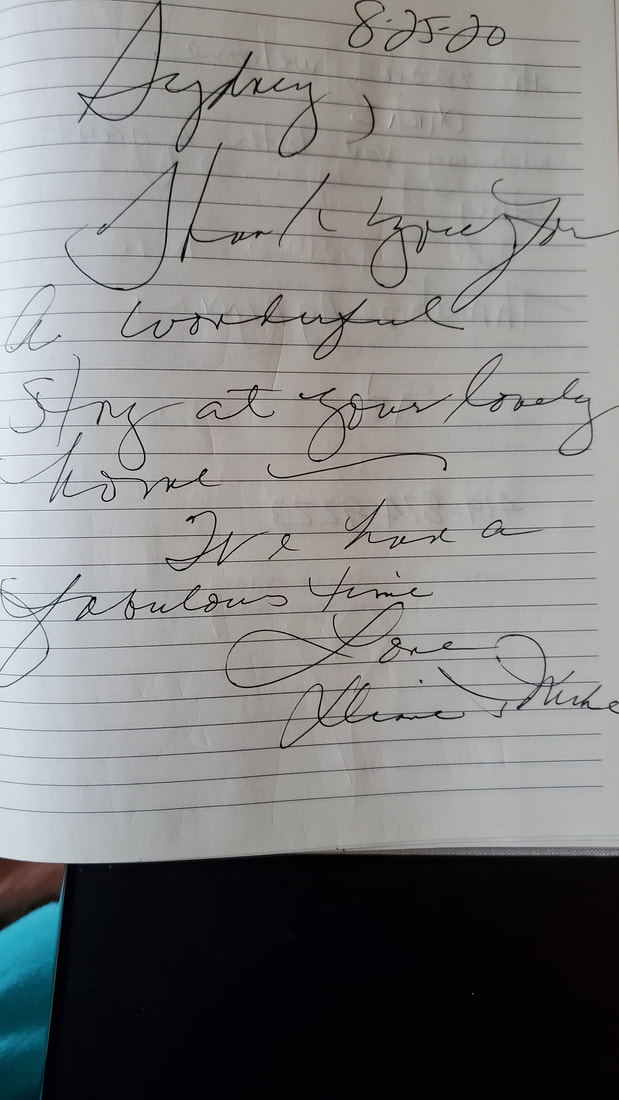 8-25-20
Sydney,
Thank you for
a wonderful
stay at your lovely
home
I've had a
fabulous time
Love
Mike